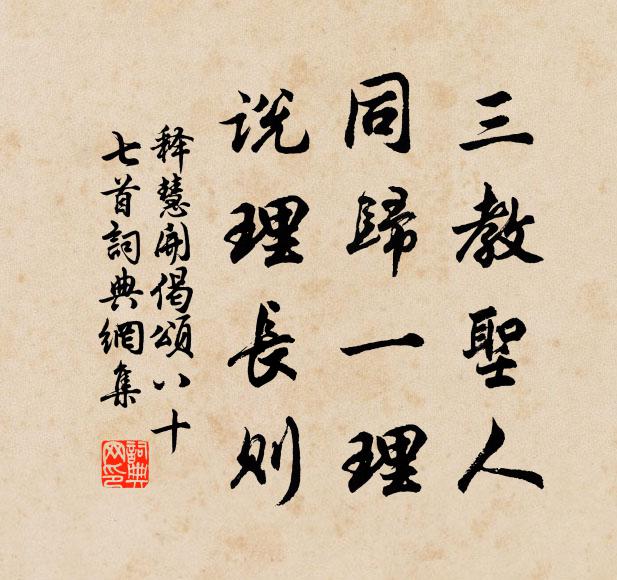 三教聖人
同歸一理
说理長则
释慧開偈頌八十
七首詞典網集
詞典
网印